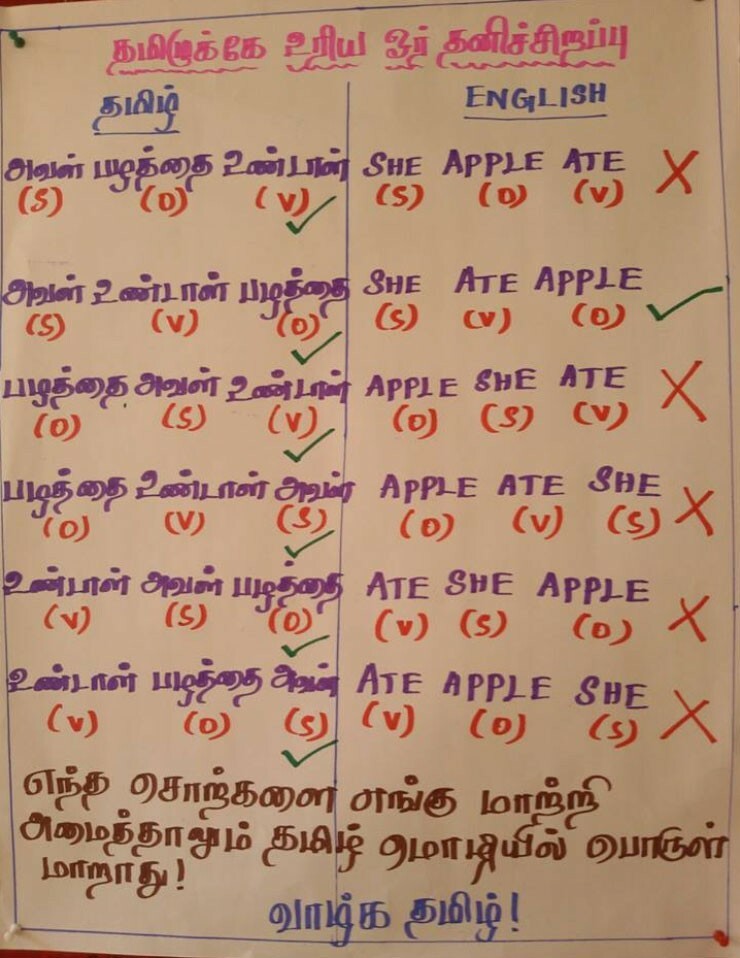 தமிழுக்கே உரிய ஓர் தனிச்சிறப்பு
தமிழ் ENGLISH
அவள் பழத்தை உண்டாள் SHE APPLE ATE X
(S) (O) (V) ✓ (S) (O) (V)
அவள் உண்டாள் பழத்தை SHE ATE APPLE ✓
(S) (V) (O) ✓ (S) (V) (O)
பழத்தை அவள் உண்டாள் APPLE SHE ATE X
(O) (S) (V) ✓ (O) (S) (V)
பழத்தை உண்டாள் அவள் APPLE ATE SHE X
(O) (V) (S) ✓ (O) (V) (S)
உண்டாள் அவள் பழத்தை ATE SHE APPLE X
(V) (S) (O) ✓ (V) (S) (O)
உண்டாள் பழத்தை அவள் ATE APPLE SHE X
(V) (O) (S) ✓ (V) (O) (S)
எந்த சொற்களை எங்கு மாற்றி
அமைத்தாலும் தமிழ் மொழியில் பொருள்
மாறாது!
வாழ்க தமிழ்!